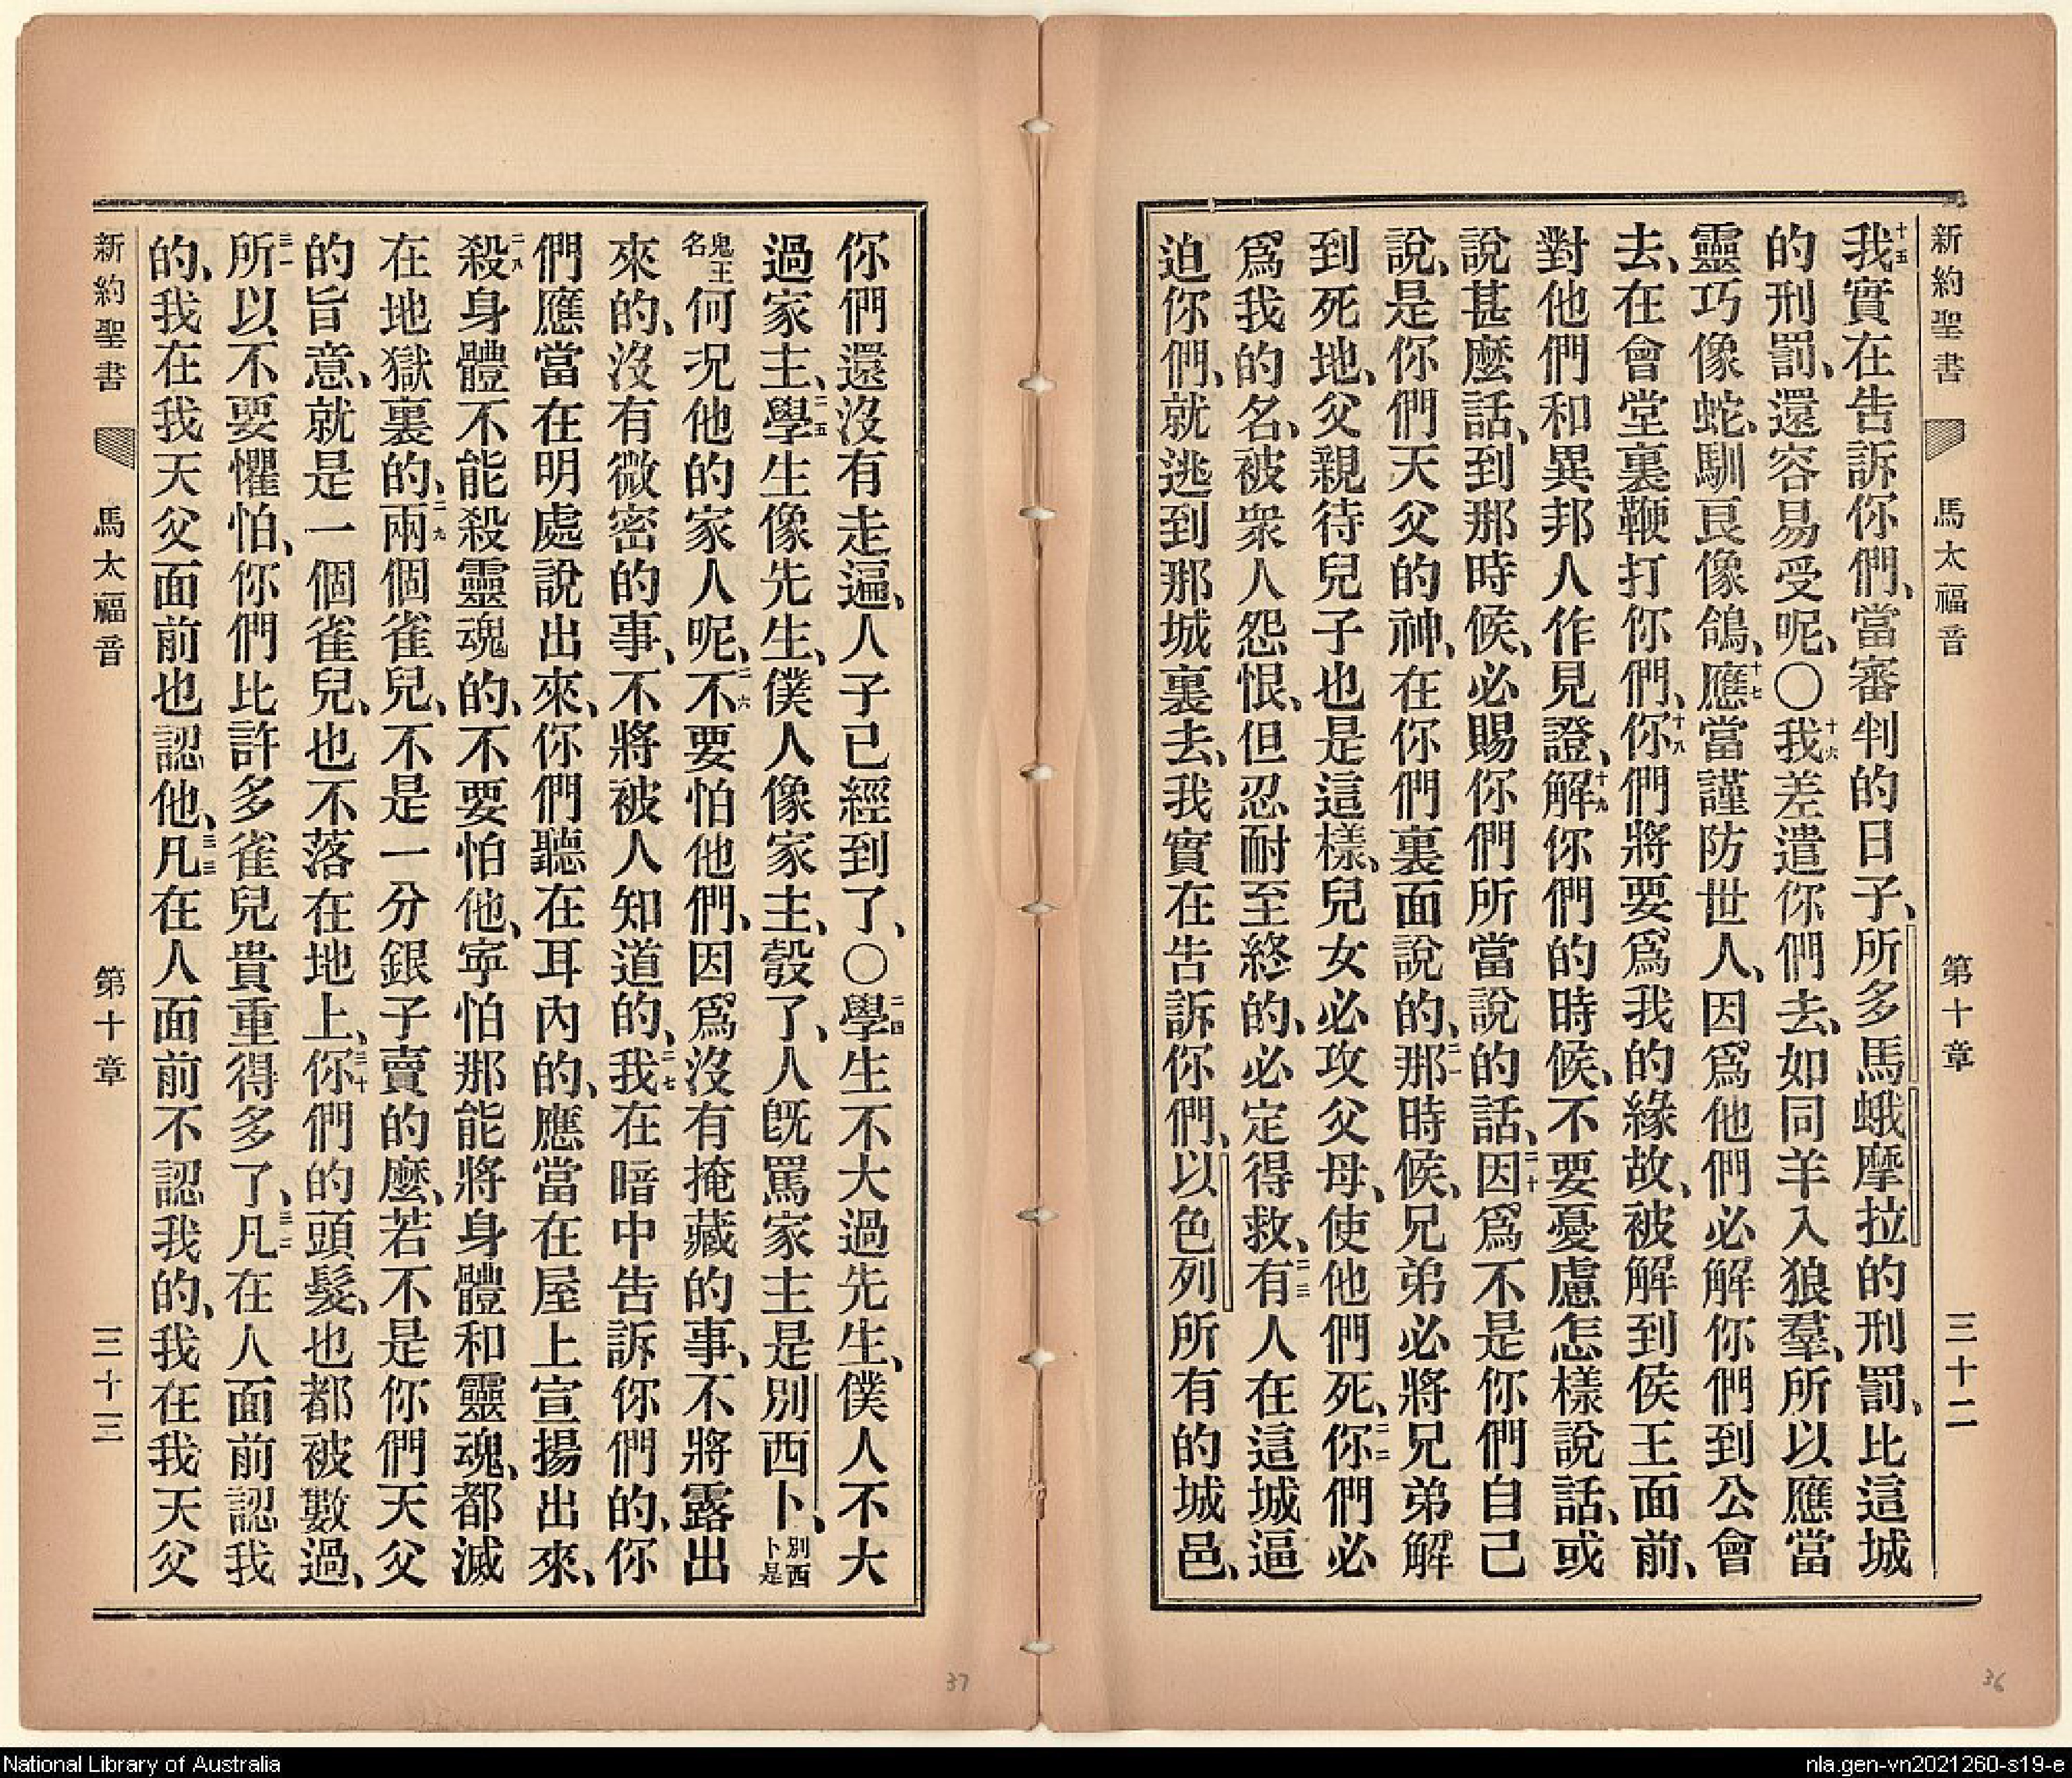 新約聖書 馬太福音 第十章 三十二
十五我實在告訴你們、當審判的日子、所多馬蛾摩拉的刑罰、比這城
的刑罰、還容易受呢、〇十六我差遣你們去、如同羊入狼羣、所以應當
靈巧像蛇、馴良像鴿、十七應當謹防世人、因爲他們必解你們到公會
去、在會堂裏鞭打你們、十八你們將要爲我的緣故、被解到侯王面前、
對他們和異邦人作見證、十九解你們的時候、不要憂慮怎樣說話、或
說甚麼話、到那時候、必賜你們所當說的話、二十因爲不是你們自己
說、是你們天父的神、在你們裏面說的、二一那時候、兄弟必將兄弟解
到死地、父親待兒子也是這樣、兒女必攻父母、使他們死、二二你們必
爲我的名、被衆人怨恨、但忍耐至終的、必定得救、二三有人在這城逼
迫你們、就逃到那城裏去、我實在告訴你們、以色列所有的城邑、
你們還沒有走遍、人子已經到了、〇二四學生不大過先生、僕人不大
過家主、二五學生像先生、僕人像家主、彀了、人旣罵家主是別西卜、別西卜是
鬼王名何况他的家人呢、二六不要怕他們、因爲沒有掩藏的事、不將露出
來的、沒有微密的事、不將被人知道的、二七我在暗中告訴你們的、你
們應當在明處說出來、你們聽在耳內的、應當在屋上宣揚出來、
二八殺身體不能殺靈魂的、不要怕他、寧怕那能將身體和靈魂、都滅
在地獄裏的、二九兩個雀兒、不是一分銀子賣的麼、若不是你們天父
的旨意、就是一個雀兒、也不落在地上、三十你們的頭髮、也都被數過、
三一所以不要懼怕、你們比許多雀兒貴重得多了、三二凡在人面前認我
的、我在我天父面前也認他、三三凡在人面前不認我的、我在我天父
新約聖書 馬太福音 第十章 三十三
37
36
National Library of Australia
nla.gen-vn2021260-s19-e